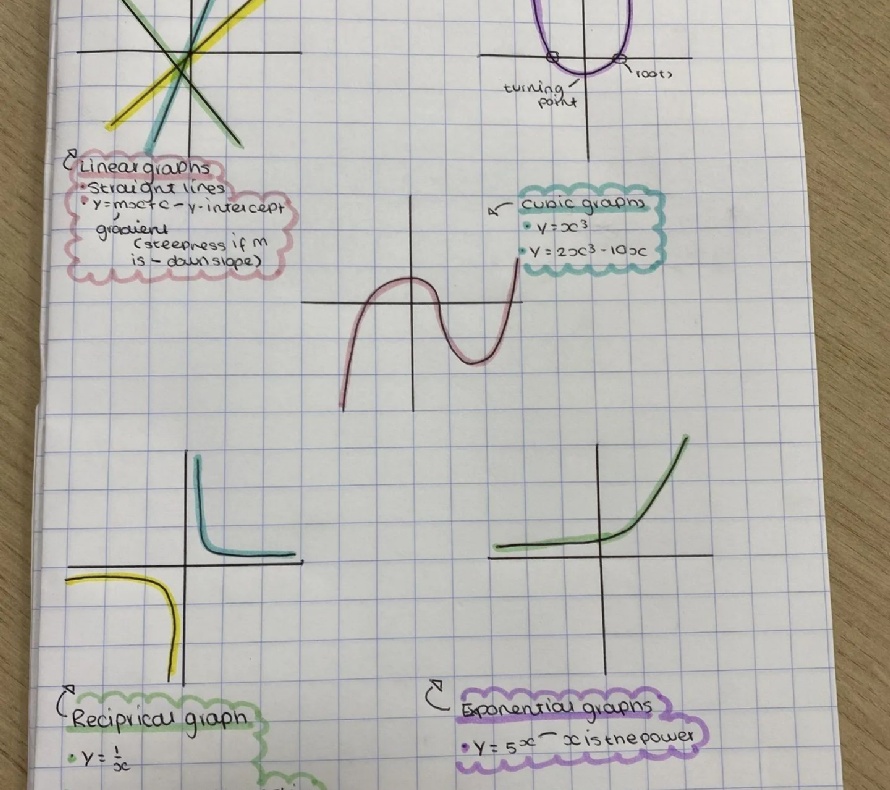 turning
point
roots
Linear graphs
• Straight lines
• y=mx+c - y-intercept
gradient
(steepness if m
is - down slope)
cubic graphs
• y=x³
• y=2x³-10x
Reciprical graph
• y = 1/x
Exponential graphs
• y = 5x - x is the power